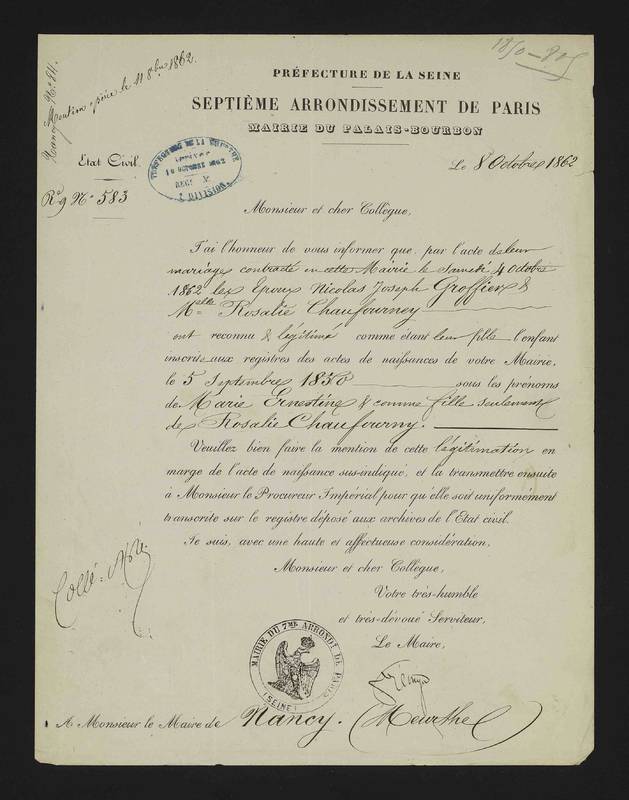 1850-805
Nancy N° 811.
Mention opérée le 11 8bre 1862.
PRÉFECTURE DE LA SEINE
SEPTIÈME ARRONDISSEMENT DE PARIS
MAIRIE DU PALAIS-BOURBON
Etat Civil.
Re 9 N° 583
10 OCTOBRE 1862
DIVISION
Le 8 Octobre 1862
Monsieur et cher Collègue,
J'ai l'honneur de vous informer que, par l'acte de leur
mariage contracté en cette Mairie le Samedi 4 Octobre
1862 les Epoux Nicolas Joseph Groffier &
Melle Rosalie Chaufourney
ont reconnu & légitimé comme étant leur fille l'enfant
inscrite aux registres des actes de naissances de votre Mairie,
le 5 Septembre 1850 sous les prénoms
de Marie Ernestine & comme fille seulement
de Rosalie Chaufourny.
Veuillez bien faire la mention de cette légitimation en
marge de l'acte de naissance sus-indiqué, et la transmettre ensuite
à Monsieur le Procureur Impérial pour qu'elle soit uniformément
transcrite sur le registre déposé aux archives de l'Etat civil.
Je suis, avec une haute et affectueuse considération,
Monsieur et cher Collègue,
Votre très-humble
et très-dévoué Serviteur,
Le Maire,
MAIRIE DU 7ME ARRONDT DE PARIS
(SEINE)
A Monsieur le Maire de Nancy. (Meurthe)